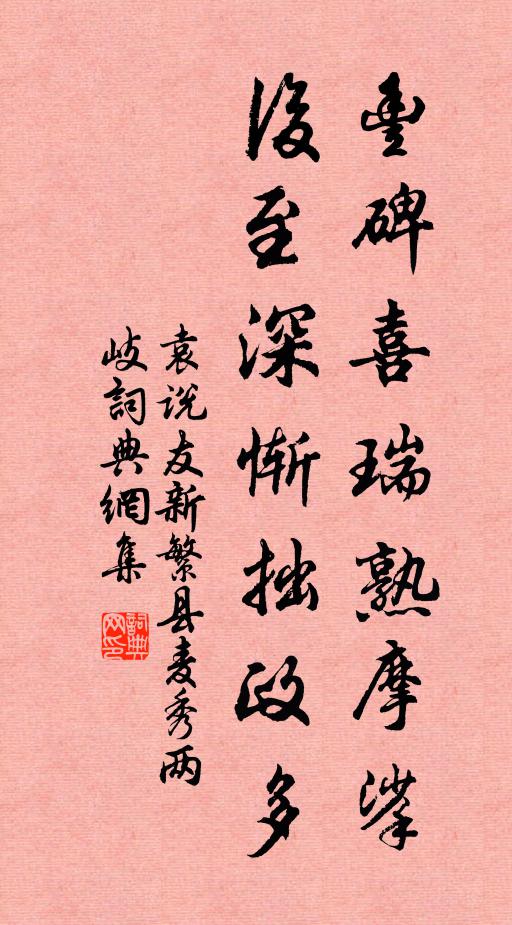 豊碑喜瑞熟摩挲
後至深慚拙政多
袁说友新繁县麦秀两
岐詞典網集
詞典网印